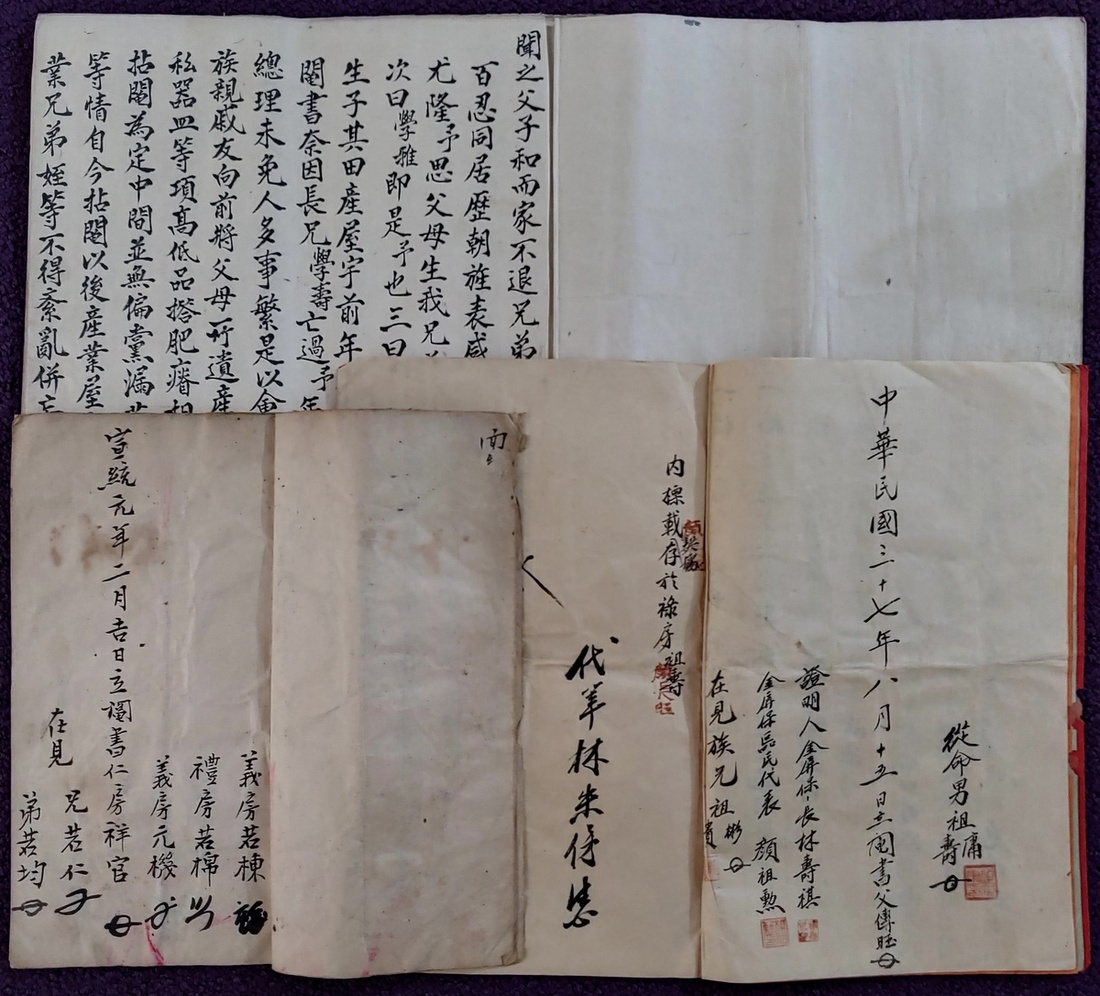 聞之父子和而家不退兄弟
百忍同居歷朝旌表咸
尤隆予思父母生我兄弟
次曰學雅即是予也三曰
生子其田產屋宇前年
鬮書奈因長兄學壽亡過予年
總理未免人多事繁是以會
族親戚友向前將父母所遺產
私器皿等項高低品搭肥瘠相
拈鬮為定中間並無偏黨漏
等情自今拈鬮以後產業屋
業兄弟姪等不得紊亂併忘
從命男祖庸
壽
中華民國三十七年八月十五日立鬮書父傳旺
證明人金屏保保長林壽祺
金屏保居民代表 顏祖勲
在見族兄祖彬
內標載存於祿房祖壽
代筆林
義房若棟
禮房若棉
義房元機
宣統元年二月吉日立鬮書仁房祥官
在見
兄若仁
弟若均